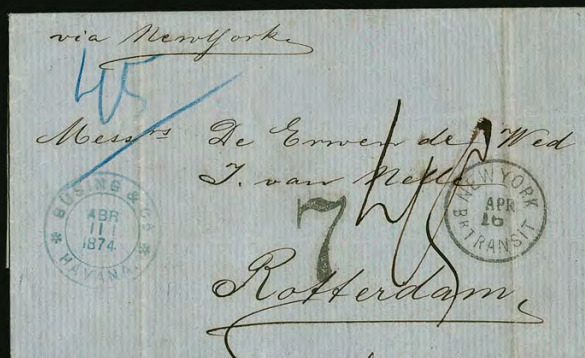 via New York
45
Messrs De Erwen de Wed
J. van Nelle
BÜSING & Co
ABR
11
1874
HAVANA.
NEW YORK
APR
16
Br TRANSIT
7
45
Rotterdam,